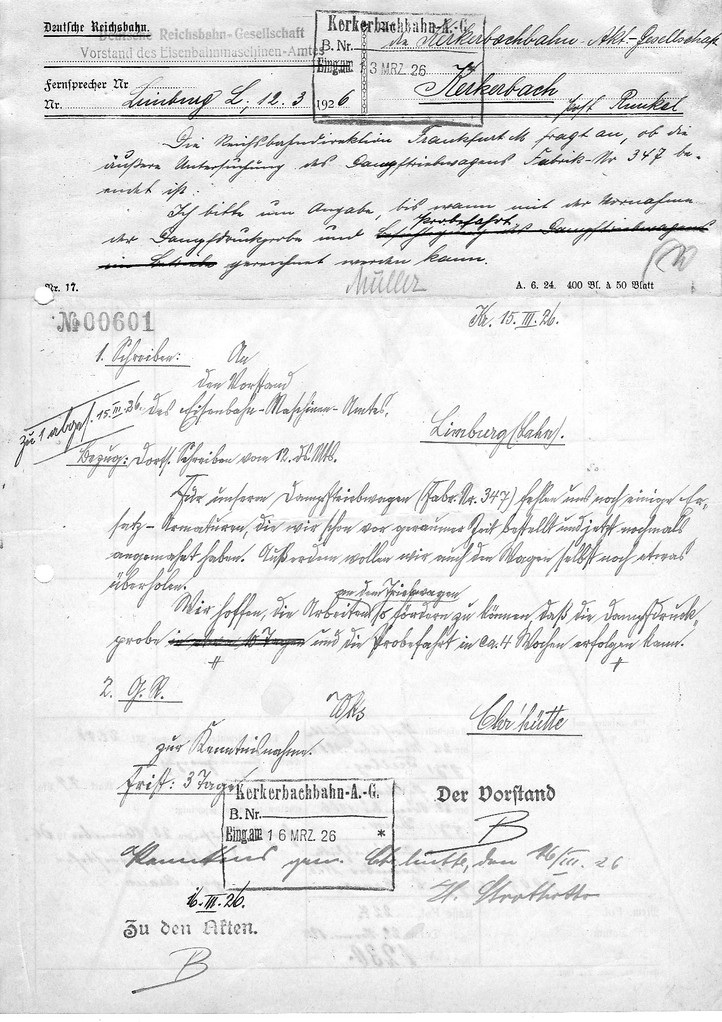 Deutsche Reichsbahn.
Deutsche Reichsbahn-Gesellschaft
Vorstand des Eisenbahnmaschinen-Amtes
Kerkerbachbahn-A.-G.
B. Nr.
Eing. am 13 MRZ. 26
die Kerkerbachbahn-Akt-Gesellschaft
Kerkerbach
Post Runkel
Fernsprecher Nr
Nr. Limburg L, 12. 3 1926
Die Reichsbahndirektion Frankfurt M fragt an, ob die
äußere Untersuchung des Dampftriebwagens Fabrik-Nr 347 be-
endet ist.
Ich bitte um Angabe, bis wann mit der Vornahme
der Dampfdruckprobe und Probefahrt
gerechnet werden kann.
Müller
Nr. 17.
A. 6. 24. 400 Bl. à 50 Blatt
No 00601
Kr. 15. III. 26.
1. Schreiben: An
den Vorstand
des Eisenbahn-Maschinen-Amtes,
Limburg (Lahn).
zu 1 abges. 15. III. 26.
Bezug: Dorts. Schreiben vom 12. ds. Mts.
Für unseren Dampftriebwagen (Fabr. Nr. 347) fehlen uns noch einige Er-
satz-Armaturen, die wir schon vor geraumer Zeit bestellt und jetzt nochmals
angemahnt haben. Außerdem wollen wir auch den Wagen selbst noch etwas
überholen.
Wir hoffen, die Arbeiten an dem Triebwagen so fördern zu können, daß die Dampfdruck-
probe und die Probefahrt in ca. 4 Wochen erfolgen kann.
2. G. R.
Wks
Chr'hütte
zur Kenntnisnahme.
Frist: 3 Tage
Kerkerbachbahn-A.-G.
B. Nr.
Eing. am 16 MRZ. 26 *
Der Vorstand
B
Kenntnis gen. Chr.hütte, den 16/III. 26
16. III. 26.
Zu den Akten.
B